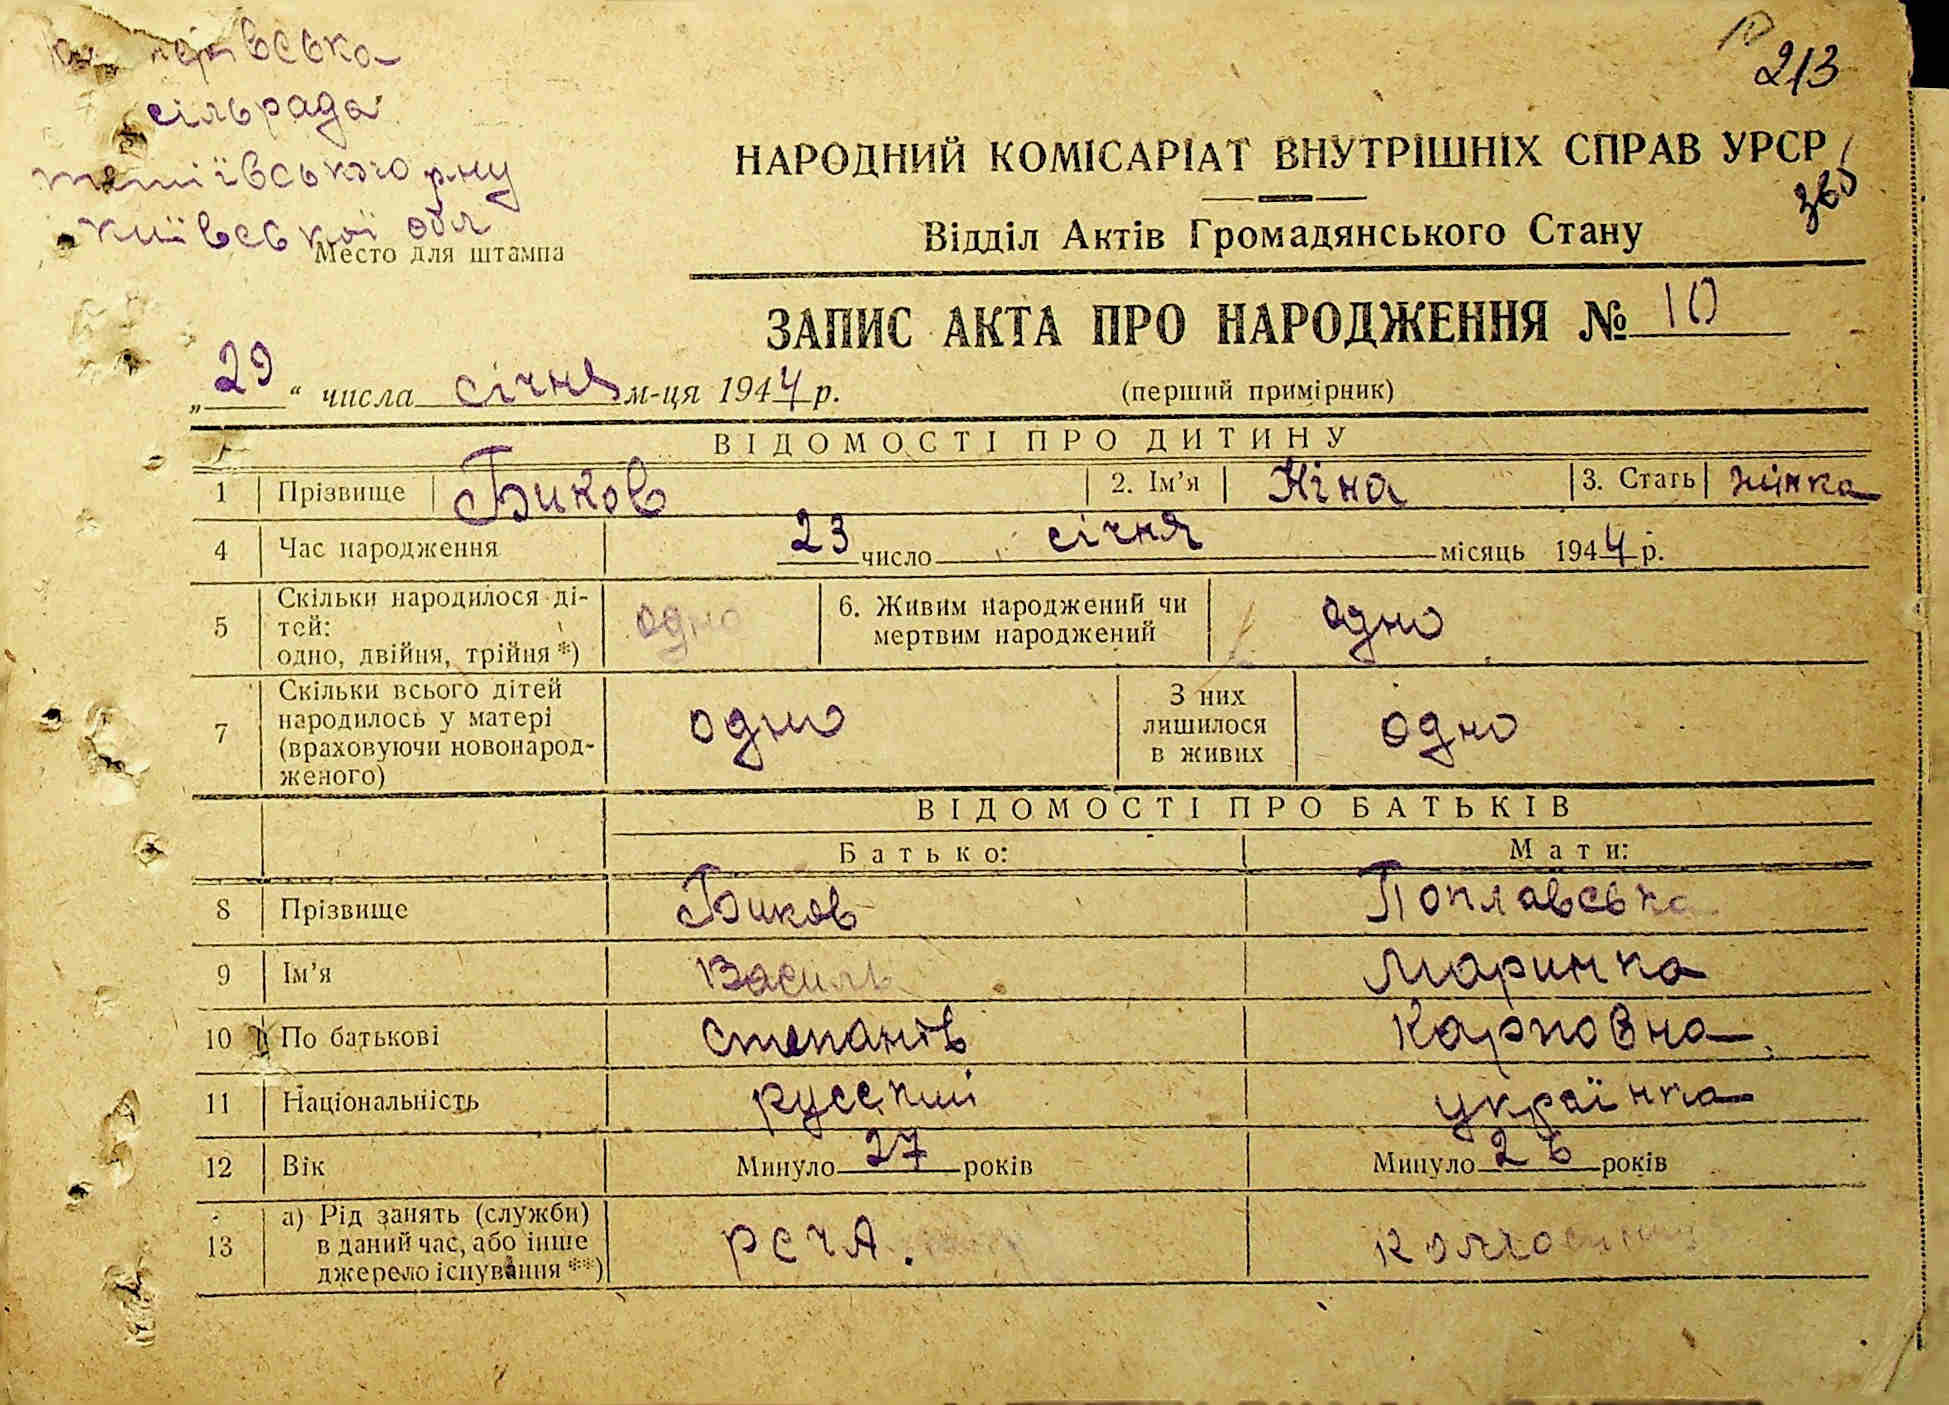 сільрада
р-ну
Київської обл
Место для штампа
10
213
НАРОДНИЙ КОМІСАРІАТ ВНУТРІШНІХ СПРАВ УРСР
Відділ Актів Громадянського Стану
ЗАПИС АКТА ПРО НАРОДЖЕННЯ № 10
„29“ числа січня м-ця 1944 р.
(перший примірник)
ВІДОМОСТІ ПРО ДИТИНУ
1 Прізвище Биков 2. Ім’я Ніна 3. Стать жінка
4 Час народження 23 число січня місяць 1944 р.
5 Скільки народилося ді-
тей:
одно, двійня, трійня *) одно
6. Живим народжений чи
мертвим народжений одно
7 Скільки всього дітей
народилось у матері
(враховуючи новонарод-
женого) одно
З них
лишилося
в живих одно
ВІДОМОСТІ ПРО БАТЬКІВ
Батько: Мати:
8 Прізвище Биков Поплавська
9 Ім’я Василь Маринка
10 По батькові Степанів Карповна
11 Національність русский українка
12 Вік Минуло 27 років Минуло 26 років
13 а) Рід занять (служби)
в даний час, або інше
джерело існування **) РСЧА.